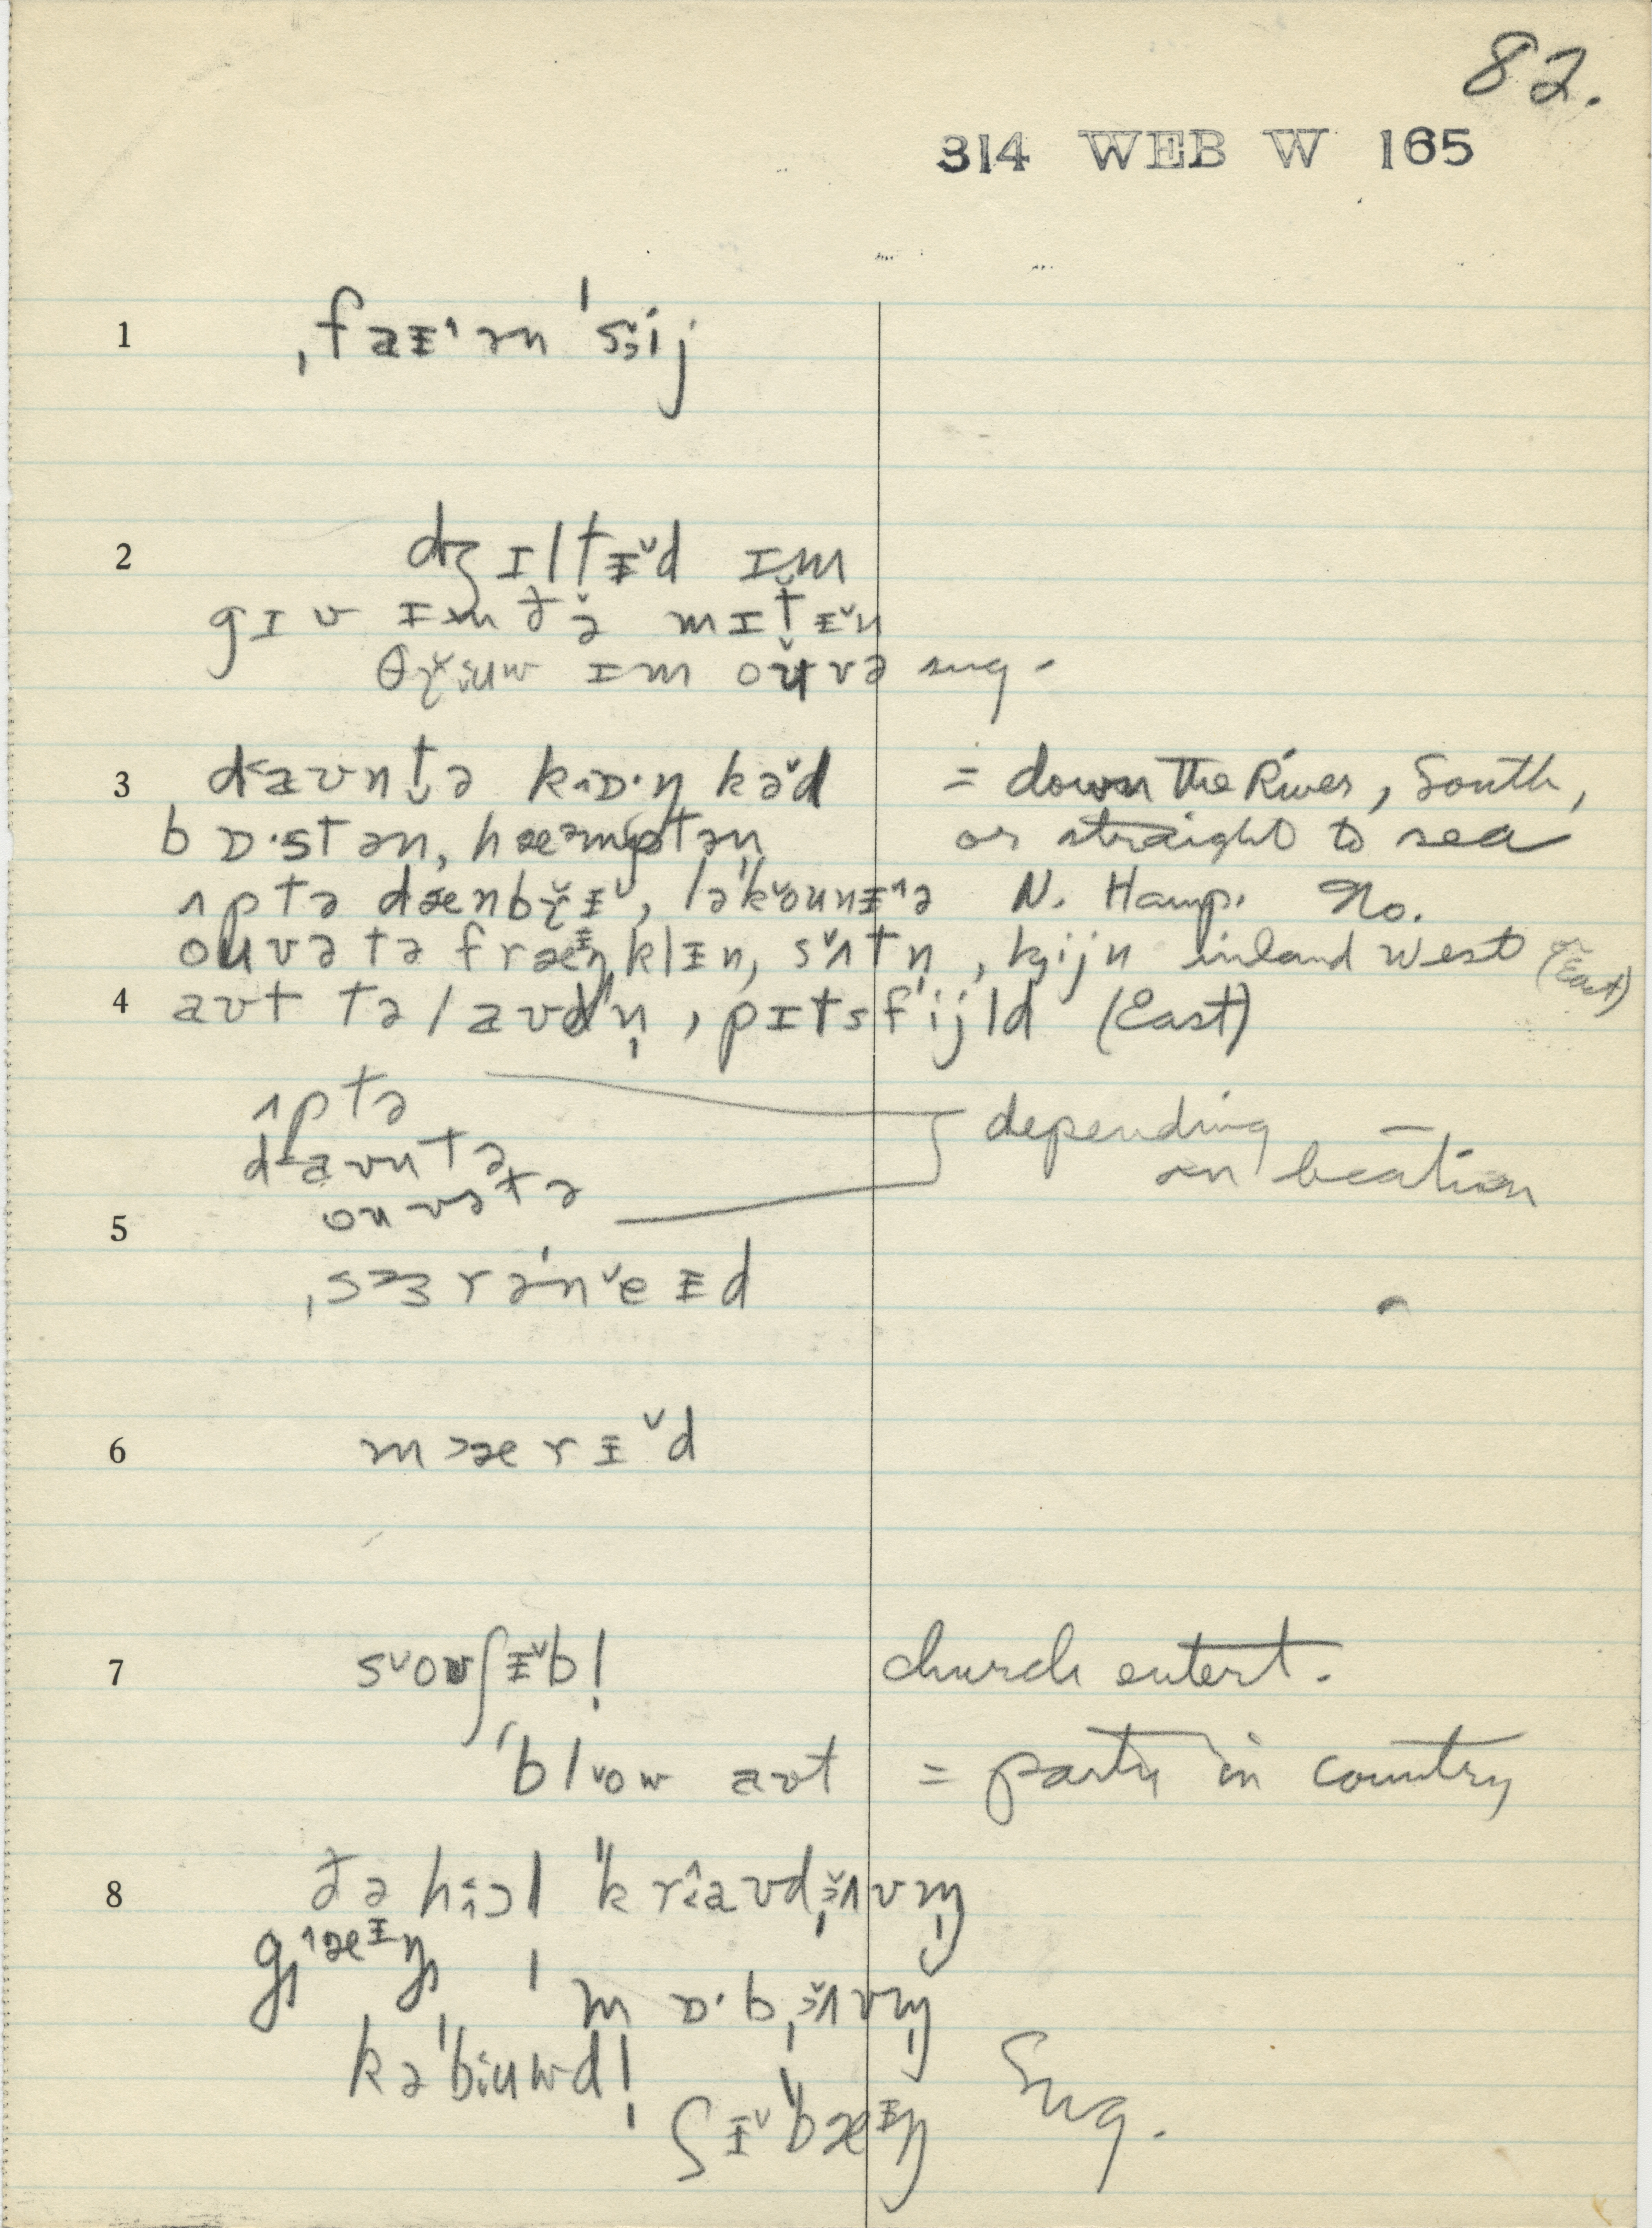 82.
314 WEB W 165
1 ˌfaɪ˄ən ˈsi̬j
2 dʒɪltɪ̵˅d ɪm
gɪv ɪm ðə̌ mɪtɪ̵˅n
θɾ̌iuw ɪm oʊ̌və sug.
3 daʊntə kɒ·ŋkəd = down the River, South,
bɒ·stən, hæəmptən or straight to sea
ʌptə dænbɾ̌ɪ̵, ləˈkoʊnɪ̵ə N. Hamp. No.
oʊvə tə fræɪ̵ŋklɪ̵n, sʌtn̩, kijn inland West (or East)
4 aʊt tə laʊdn̩, pɪtsfˈijld (East)
ʌptə
daʊntə depending
oʊvətə on location
5 ˌsɜrəˈneɪ̵d
6 mæərɪ̵˅d
7 soʊʃɪ̵˅bl̩ church entert.
ˈblow aʊt = party in country
8 ðə hɔl ˈˈkraʊdˌʌvm̩
gæɪ̵ŋ ˈmɒ·bˌʌvm̩
kəˈbiuwdl̩
ʃɪ̵˅ˈˈbæɪ̵ŋ Sug.